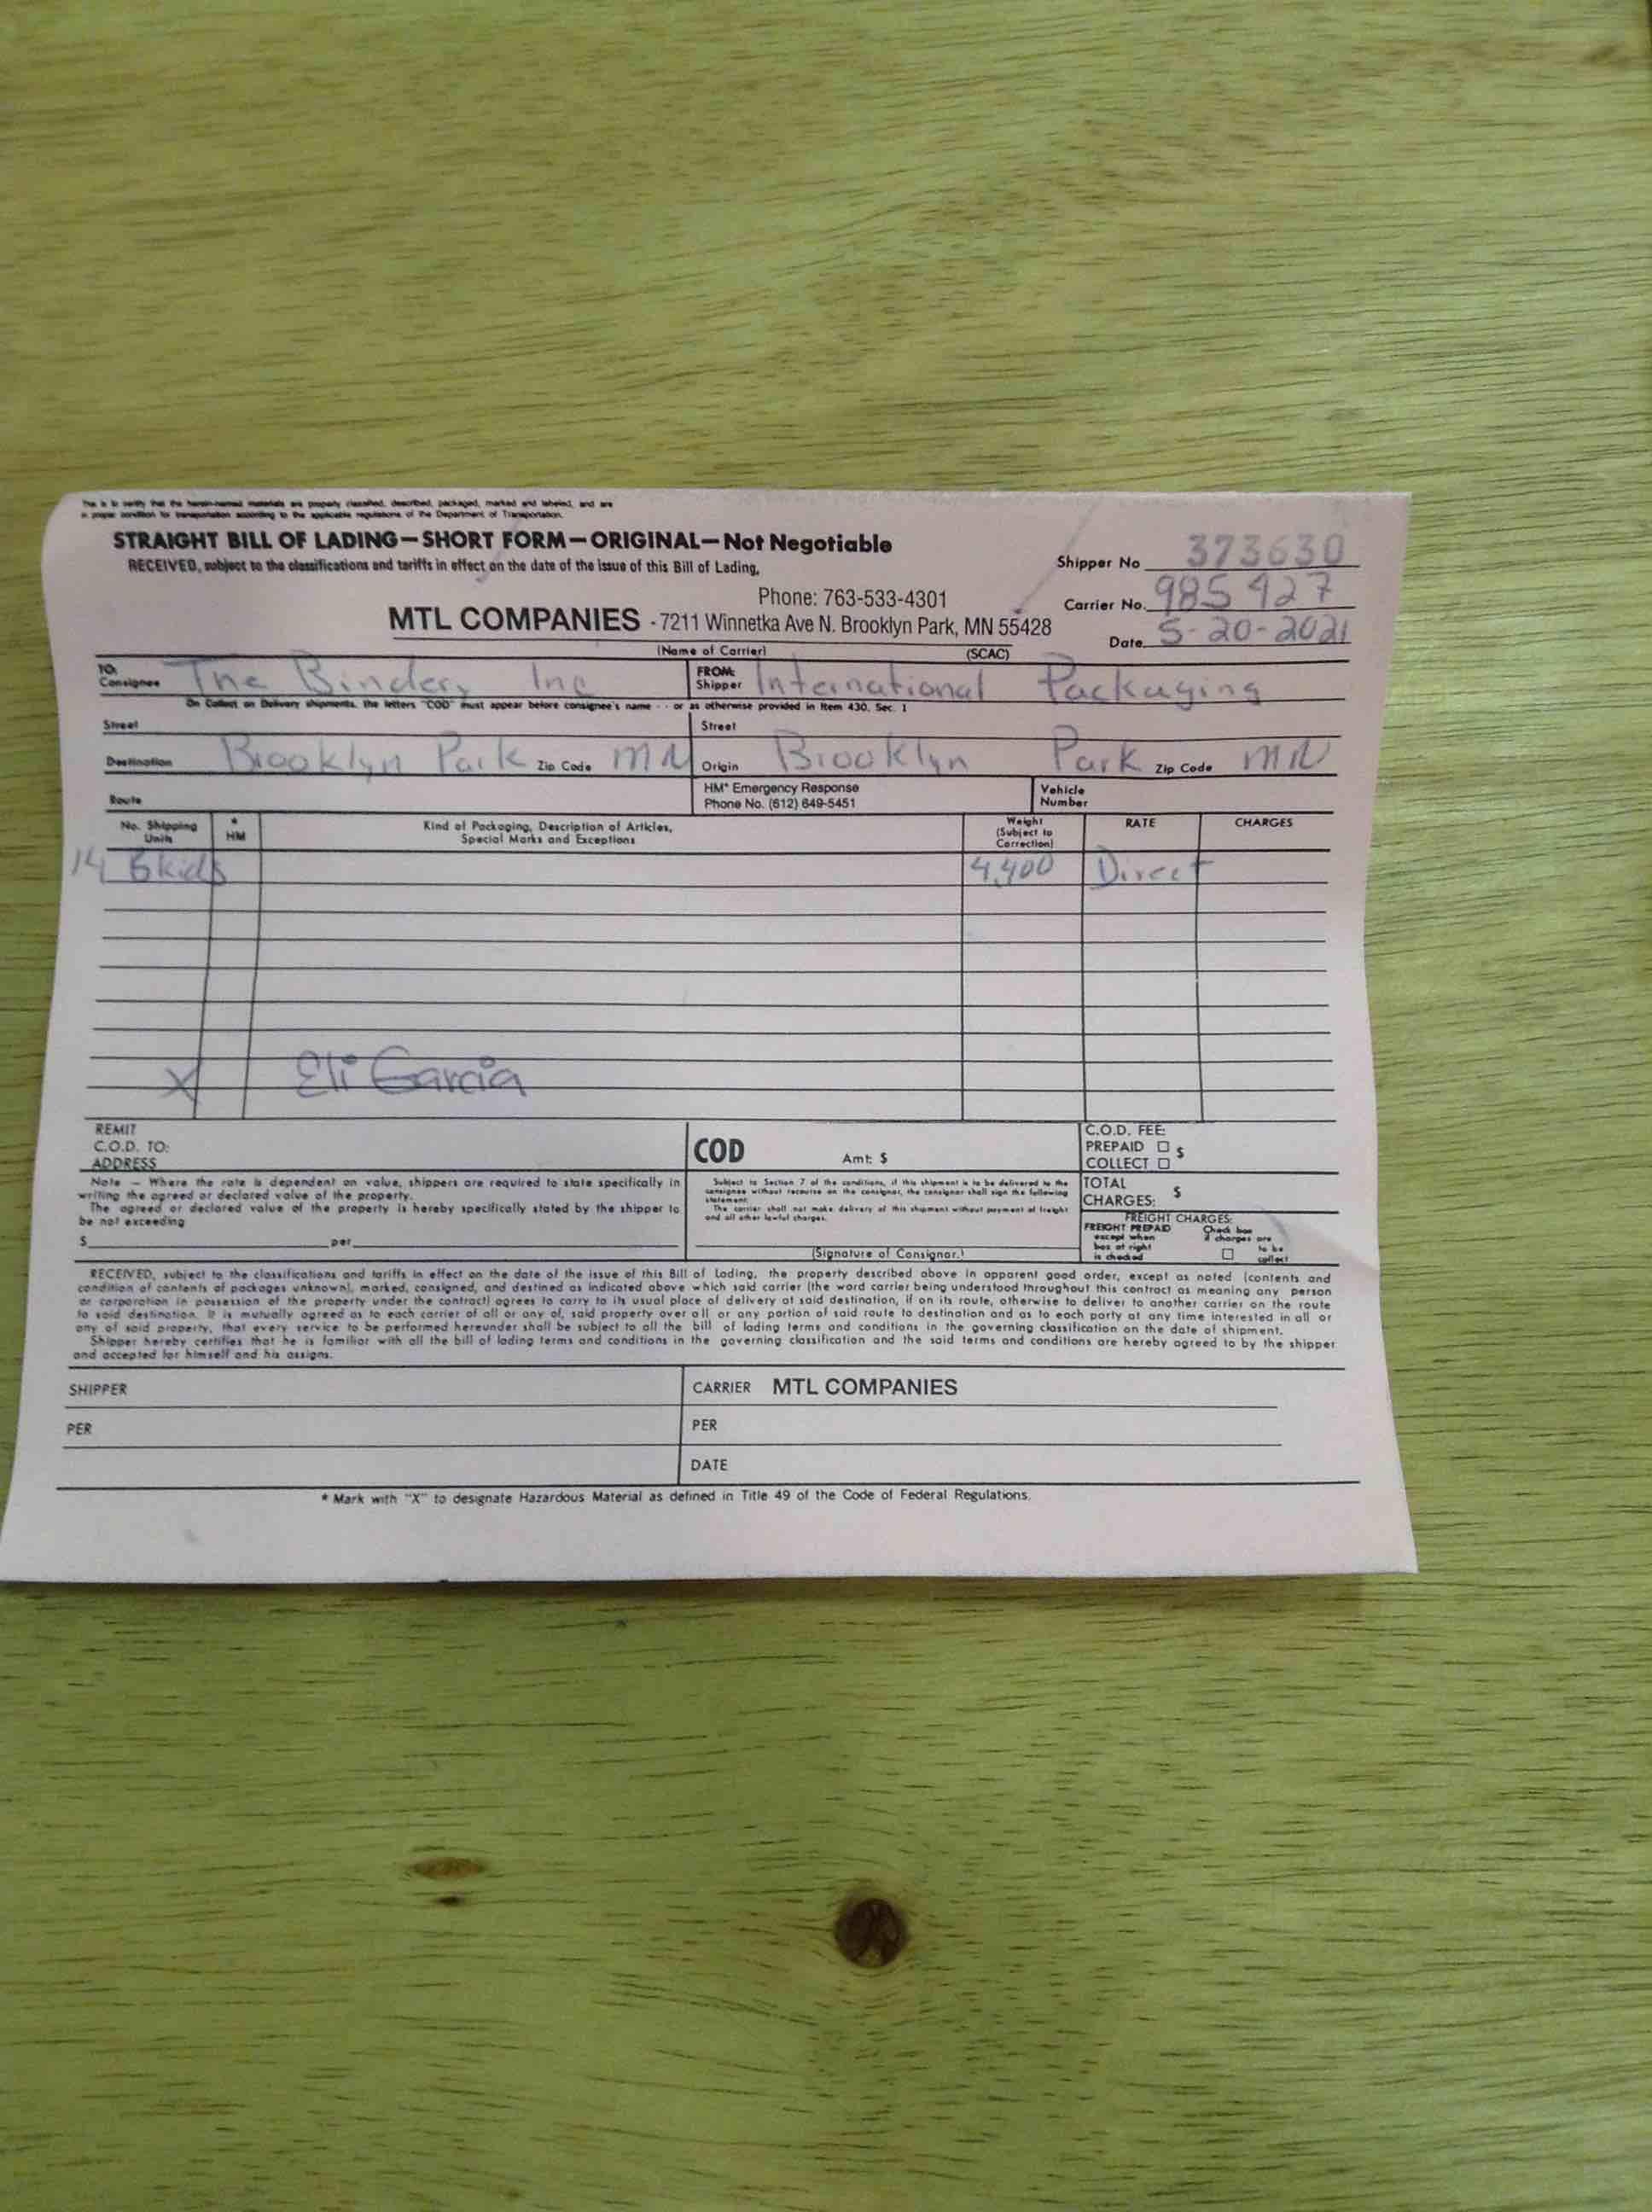 This is to certify that the herein-named materials are properly classified, described, packaged, marked and labeled, and are
in proper condition for transportation according to the applicable regulations of the Department of Transportation.
STRAIGHT BILL OF LADING—SHORT FORM—ORIGINAL—Not Negotiable
RECEIVED, subject to the classifications and tariffs in effect on the date of the issue of this Bill of Lading,
Shipper No 373630
Phone: 763-533-4301
Carrier No. 985927
MTL COMPANIES - 7211 Winnetka Ave N. Brooklyn Park, MN 55428
Date 5-20-2021
(Name of Carrier) (SCAC)
TO: Consignee The Bindery Inc
FROM: Shipper International Packaging
On Collect on Delivery shipments, the letters "COD" must appear before consignee's name - - or as otherwise provided in Item 430, Sec. 1
Street
Street
Destination Brooklyn Park Zip Code MN
Origin Brooklyn Park Zip Code MN
Route
HM* Emergency Response
Phone No. (612) 649-5451
Vehicle
Number
No. Shipping
Units
*
HM
Kind of Packaging, Description of Articles,
Special Marks and Exceptions
Weight
(Subject to
Correction)
RATE
CHARGES
14 Skids 4,400 Direct
X Eli Garcia
REMIT
C.O.D. TO:
ADDRESS
COD Amt: $
C.O.D. FEE:
PREPAID □ $
COLLECT □
Note — Where the rate is dependent on value, shippers are required to state specifically in
writing the agreed or declared value of the property.
The agreed or declared value of the property is hereby specifically stated by the shipper to
be not exceeding
$ per
Subject to Section 7 of the conditions, if this shipment is to be delivered to the
consignee without recourse on the consignor, the consignor shall sign the following
statement:
The carrier shall not make delivery of this shipment without payment of freight
and all other lawful charges.
(Signature of Consignor.)
TOTAL
CHARGES: $
FREIGHT CHARGES:
FREIGHT PREPAID
except when
box at right
is checked
Check box
if charges are
□ to be
collect
RECEIVED, subject to the classifications and tariffs in effect on the date of the issue of this Bill of Lading, the property described above in apparent good order, except as noted (contents and
condition of contents of packages unknown), marked, consigned, and destined as indicated above which said carrier (the word carrier being understood throughout this contract as meaning any person
or corporation in possession of the property under the contract) agrees to carry to its usual place of delivery at said destination, if on its route, otherwise to deliver to another carrier on the route
to said destination. It is mutually agreed as to each carrier of all or any of, said property over all or any portion of said route to destination and as to each party at any time interested in all or
any of said property, that every service to be performed hereunder shall be subject to all the bill of lading terms and conditions in the governing classification on the date of shipment.
Shipper hereby certifies that he is familiar with all the bill of lading terms and conditions in the governing classification and the said terms and conditions are hereby agreed to by the shipper
and accepted for himself and his assigns.
SHIPPER
CARRIER MTL COMPANIES
PER
PER
DATE
* Mark with "X" to designate Hazardous Material as defined in Title 49 of the Code of Federal Regulations.